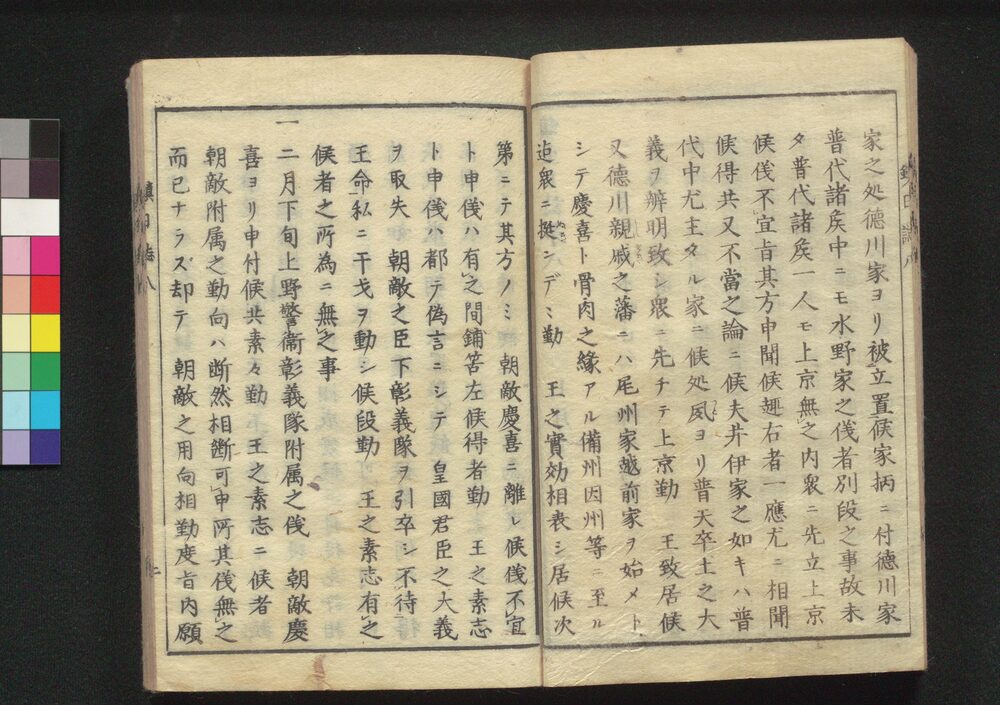 家之処徳川家ヨリ被立置候家柄ニ付徳川家
普代諸矦中ニモ水野家之儀者別段之事故未
タ普代諸矦一人モ上京無之内衆ニ先立上京
候儀不宜旨其方申聞候趣右者一應尤ニ相聞
候得共又不當之論ニ候夫井伊家之如キハ普
代中尤主タル家ニ候処夙ヨリ普天卒土之大
義ヲ辨明致シ衆ニ先チテ上京勤　王致居候
又徳川親戚之藩ニハ尾州家越前家ヲ始メト
シテ慶喜ト骨肉之縁アル備州因州等ニ至ル
迠衆ニ挺ンデミ勤　王之實効相表シ居候次
第ニテ其方ノミ　朝敵慶喜ニ離レ候儀不宜
ト申儀ハ有之間鋪筈左候得者勤　王之素志
ト申儀ハ都テ偽言ニシテ　皇國君臣之大義
ヲ取失　朝敵之臣下彰義隊ヲ引卒シ不待
王命私ニ干戈ヲ動シ候段勤　王之素志有之
候者之所為ニ無之事
一
二月下旬上野警衛彰義隊附属之儀　朝敵慶
喜ヨリ申付候共素々勤　王之素志ニ候者
朝敵附属之勤向ハ断然相断可申所其儀無之
而已ナラズ却テ　朝敵之用向相勤度旨内願